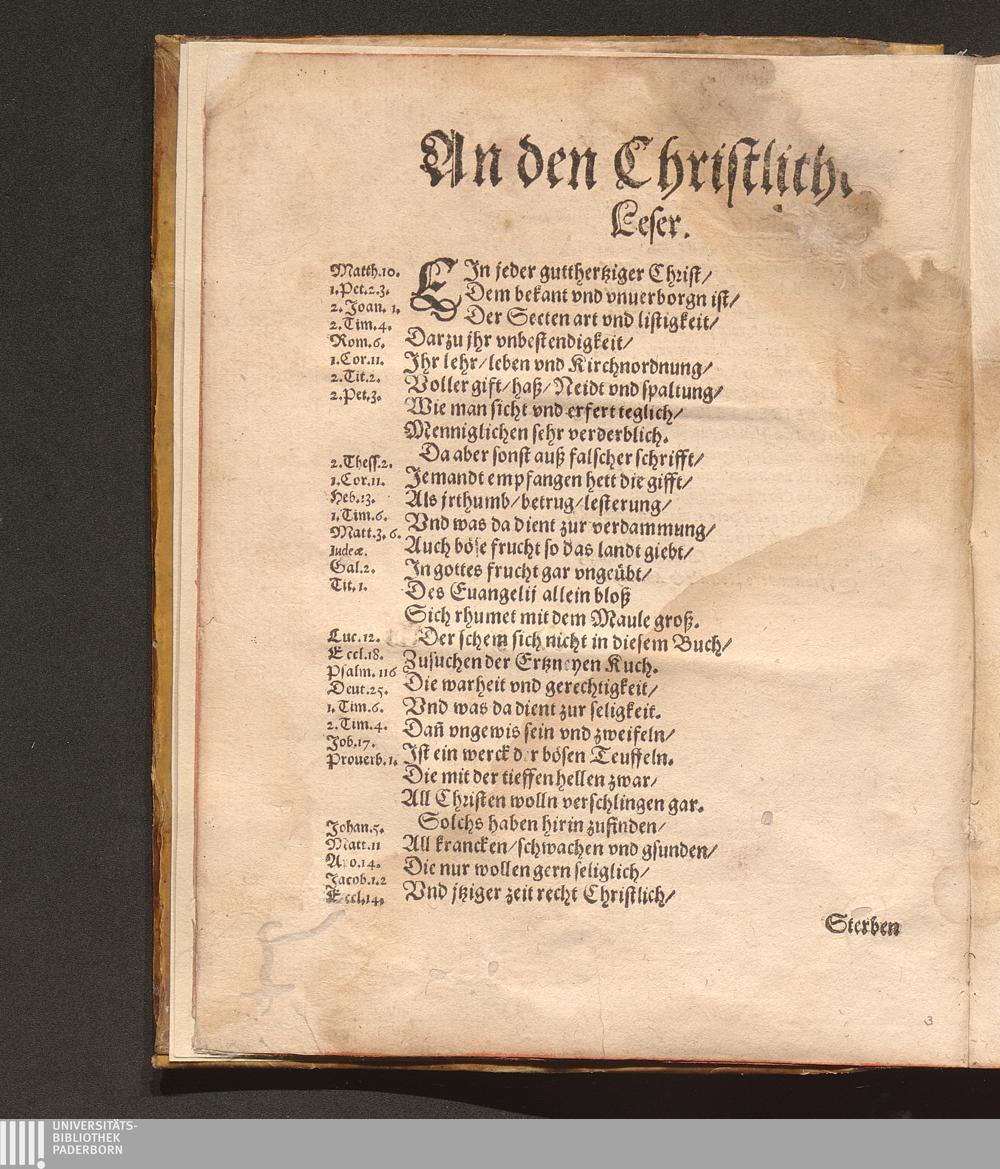 An den Christliche
Leser.
Matth.10.
1.Pet.2.3.
2. Joan. 1.
2.Tim.4.
Rom.6.
1.Cor.11.
2.Tit.2.
2.Pet.3.
EIn jeder gutthertziger Christ/
Dem bekant vnd vnuerborgn ist/
Der Secten art vnd listigkeit/
Darzu jhr vnbestendigkeit/
Ihr lehr/leben vnd Kirchnordnung/
Voller gift/haß/Neidt vnd spaltung/
Wie man sicht vnd erfert teglich/
Menniglichen sehr verderblich.
2.Thess.2.
1.Cor.11.
Heb.13.
1.Tim.6.
Matt.3.6.
Iudeæ.
Gal.2.
Tit.1.
Da aber sonst auß falscher schrifft/
Jemandt empfangen hett die gifft/
Als jrthumb/betrug/lesterung/
Vnd was da dient zur verdammung/
Auch böse frucht so das landt giebt/
In gottes frucht gar vngeübt/
Des Euangelij allein bloß
Sich rhumet mit dem Maule groß.
Luc.12.
Eccl.18.
Psalm.116
Deut.25.
1.Tim.6.
2.Tim.4.
Job.17.
Prouerb.1.
Der schem sich nicht in diesem Buch/
Zusuchen der Ertzneyen Kuch.
Die warheit vnd gerechtigkeit/
Vnd was da dient zur seligkeit.
Dañ vngewis sein vnd zweifeln/
Ist ein werck der bösen Teuffeln.
Die mit der tieffen hellen zwar/
All Christen wolln verschlingen gar.
Johan.5.
Matt.11
Apo.14.
Jacob.1.2
Eccl.14.
Solchs haben hirin zufinden/
All krancken/schwachen vnd gsunden/
Die nur wollen gern seliglich/
Vnd jtziger zeit recht Christlich/
Sterben
3
UNIVERSITÄTS-
BIBLIOTHEK
PADERBORN